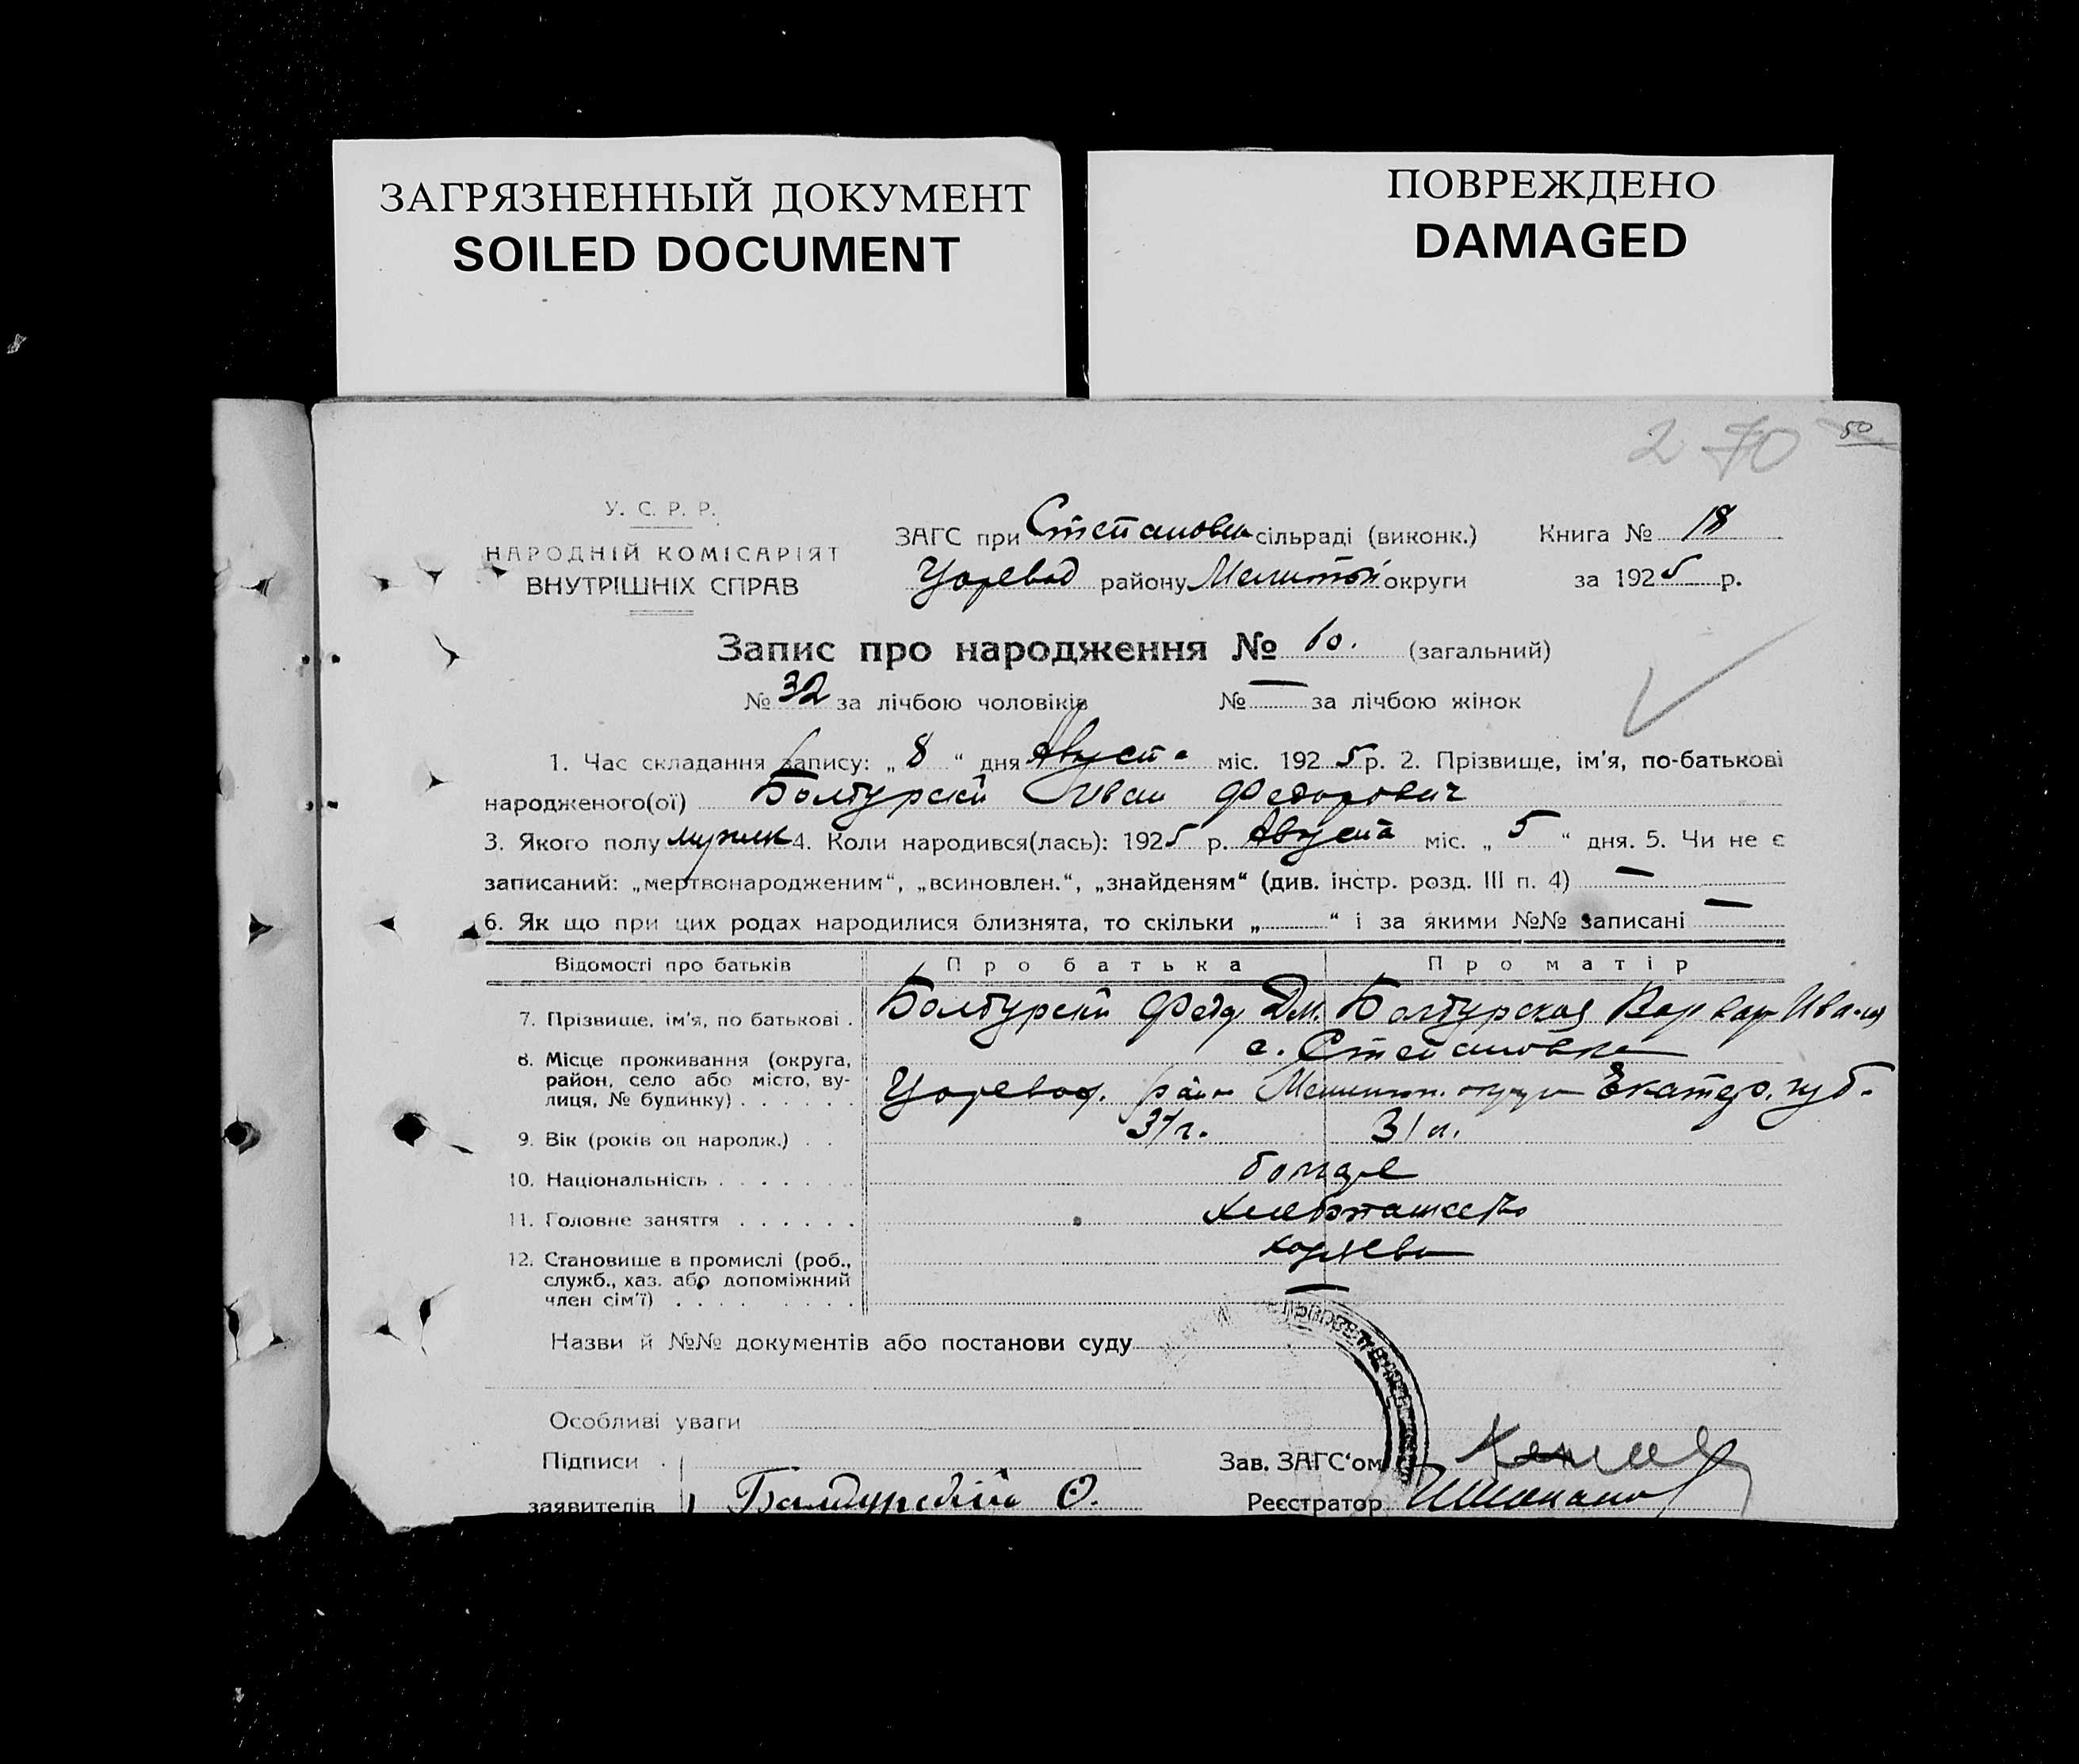 ЗАГРЯЗНЕННЫЙ ДОКУМЕНТ
SOILED DOCUMENT
ПОВРЕЖДЕНО
DAMAGED
2 70 50
У. С. Р. Р.
НАРОДНІЙ КОМІСАРІЯТ
ВНУТРІШНІХ СПРАВ
ЗАГС при Степановк сільраді (виконк.) Книга № 18
Царевод району Мелитоп округи за 1925 р.
Запис про народження № 60. (загальний)
№ 32 за лічбою чоловіків № — за лічбою жінок
1. Час складання запису: „ 8 “ дня Августа міс. 1925 р. 2. Прізвище, ім'я, по-батькові
народженого(ої) Болтурский Иван Федорович
3. Якого полу мужск 4. Коли народився(лась): 1925 р. Августа міс. „ 5 “ дня. 5. Чи не є
записаний: „мертвонародженим“, „всиновлен.“, „знайденям“ (див. інстр. розд. III п. 4) —
6. Як що при цих родах народилися близнята, то скільки „.........“ і за якими №№ записані —
Відомості про батьків Про батька Про матір
7. Прізвище, ім'я, по батькові . Болтурский Федр Дм. Болтурская Варвар Иван
8. Місце проживання (округа, район, село або місто, вулиця, № будинку) . . . . . . с. Степановка
Царевод. райн Мелитоп. округи Екатер. губ.
9. Вік (років од народж.) . . 37 г. 31 л.
10. Національність . . . . . . . болгаре
11. Головне заняття . . . . . . хлебопашество
12. Становище в промислі (роб., хозяева
служб., хаз. або допоміжний
член сім'ї) . . . . . . . . —
Назви й №№ документів або постанови суду
Особливі уваги
Підписи Зав. ЗАГС'ом
заявителів Реєстратор